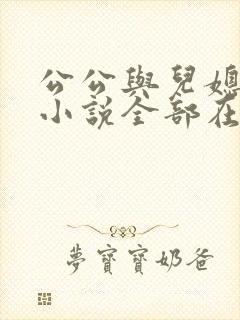 公公與兒媳
小說全部在
夢寶寶奶爸